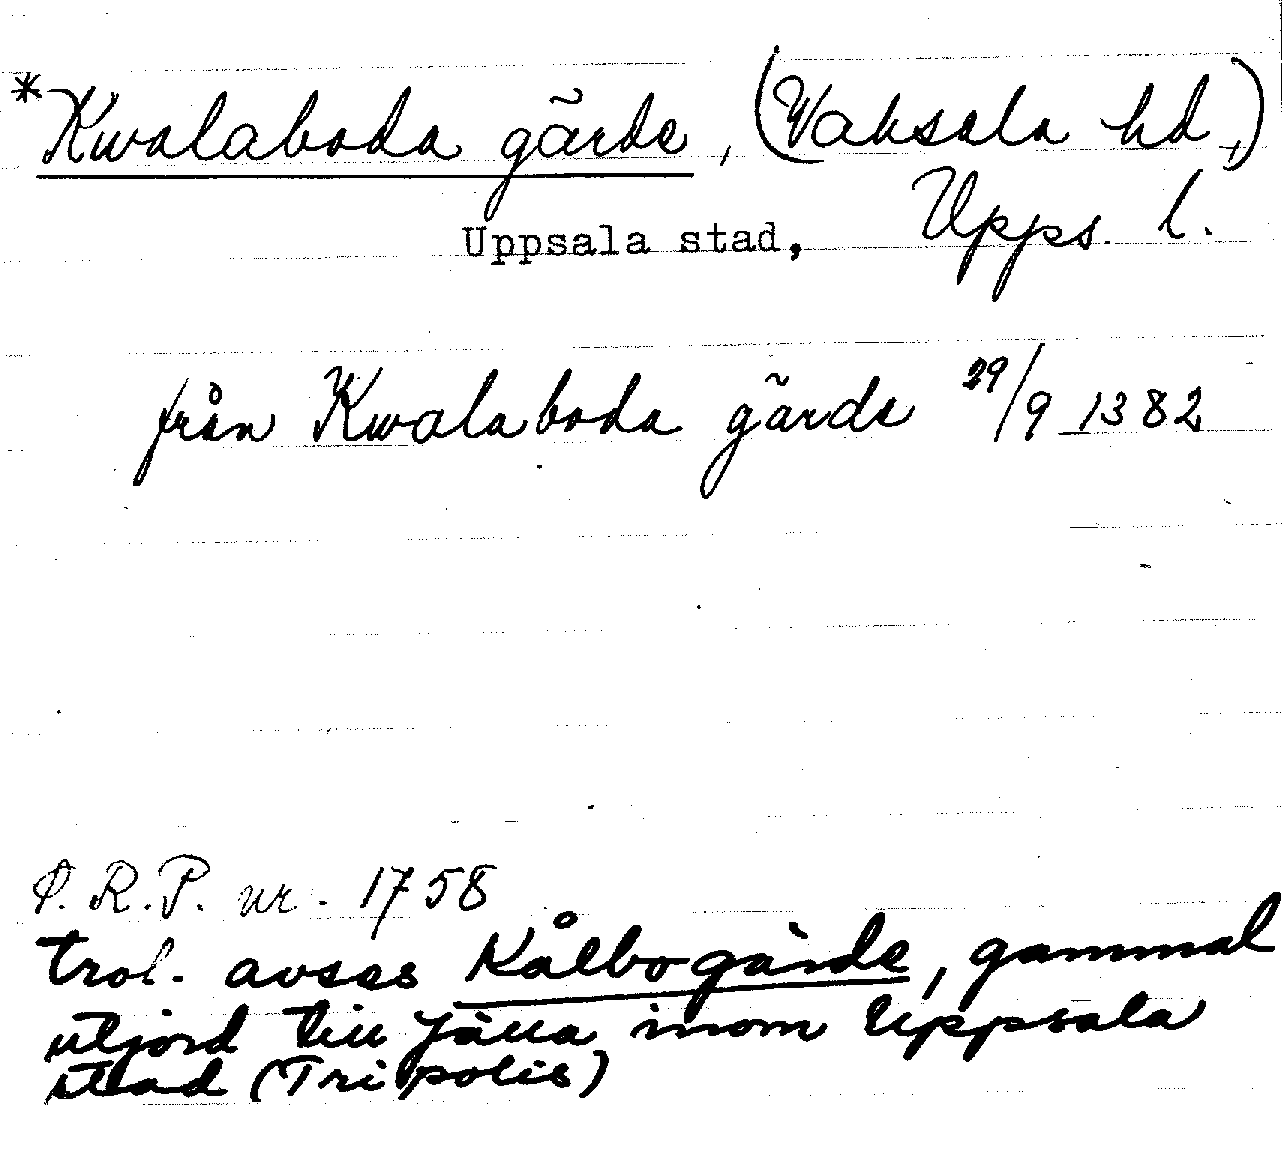 *Kwalaboda gärde, (Vaksala hd,)
Uppsala stad, Upps. l.
från Kwalaboda gärde 29/9 1382
P.R.P. nr. 1758
trol. avses Kålbogärde, gammal
utjord till Jälla, inom Uppsala
stad (Tripolis)